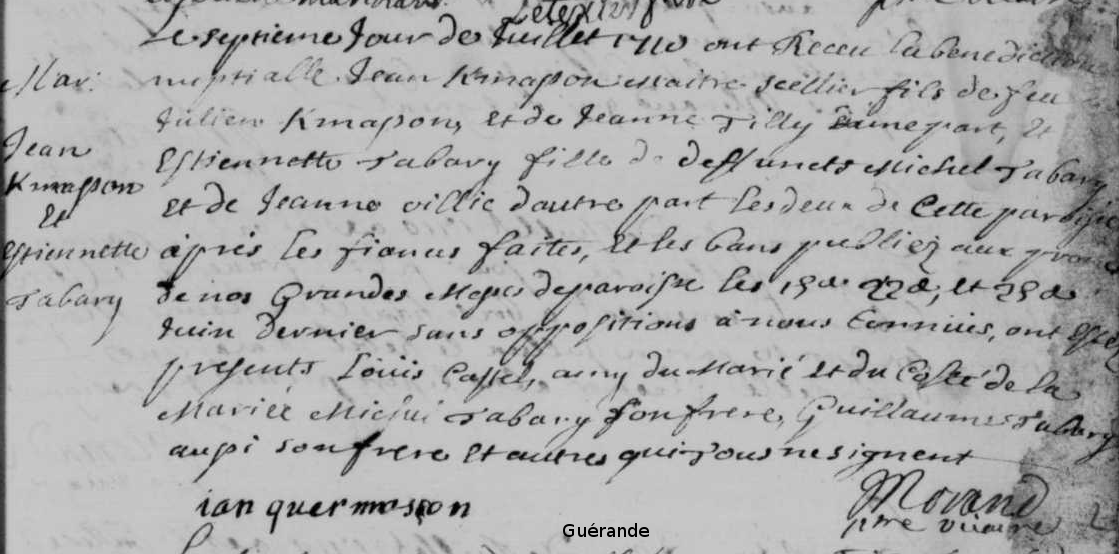 Le septieme Jour de Juillet 1710 ont Receu la benediction
Mar: nuptialle Jean Kmapson maitre sellier fils de feu
Julien Kmapson, et de Jeanne Tilly d'une part, et
Jean Estiennette Tabary fille de deffunets Michel Tabary
Kmasson et de Jeanne villic d'autre part les deux de Cette paroisse
Et
Estiennette après les fiances faites, et les bans publiez aux
Tabary de nos Grandes Messes de paroisse les 15e 22e, et 29e
Juin dernier sans oppositions à nous Connües, ont esté
presents Loüis Cassel, amy du Marié et du Costé de la
Mariée Michel Tabary son frere, Guillaume Tabary
aussi son frere et autres qui tous ne signent
ian quermason
Morand
ptre vicaire
Guérande